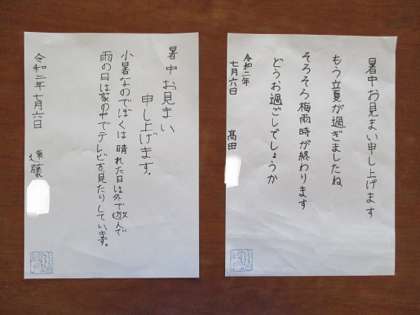 暑中お見まい申し上げます
もう立夏が過ぎましたね
そろそろ梅雨時が終わります
どうお過ごしでしょうか
令和二年
七月六日
髙田
暑中お見まい
申し上げます。
小暑なのでぼくは晴れた日は外で遊んで
雨の日は家の中でテレビを見たりしています。
令和二年七月六日